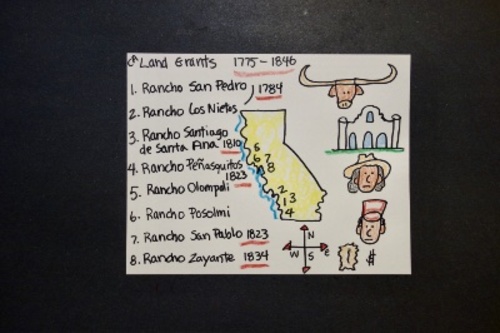 CA Land Grants 1775-1846
1. Rancho San Pedro 1784
2. Rancho Los Nietos
3. Rancho Santiago
de Santa Ana 1810
4. Rancho Peñasquitos
1823
5. Rancho Olompali
6. Rancho Posolmi
7. Rancho San Pablo 1823
8. Rancho Zayante 1834
5
6 7
8
2
1 3
4
N
W E
S
$